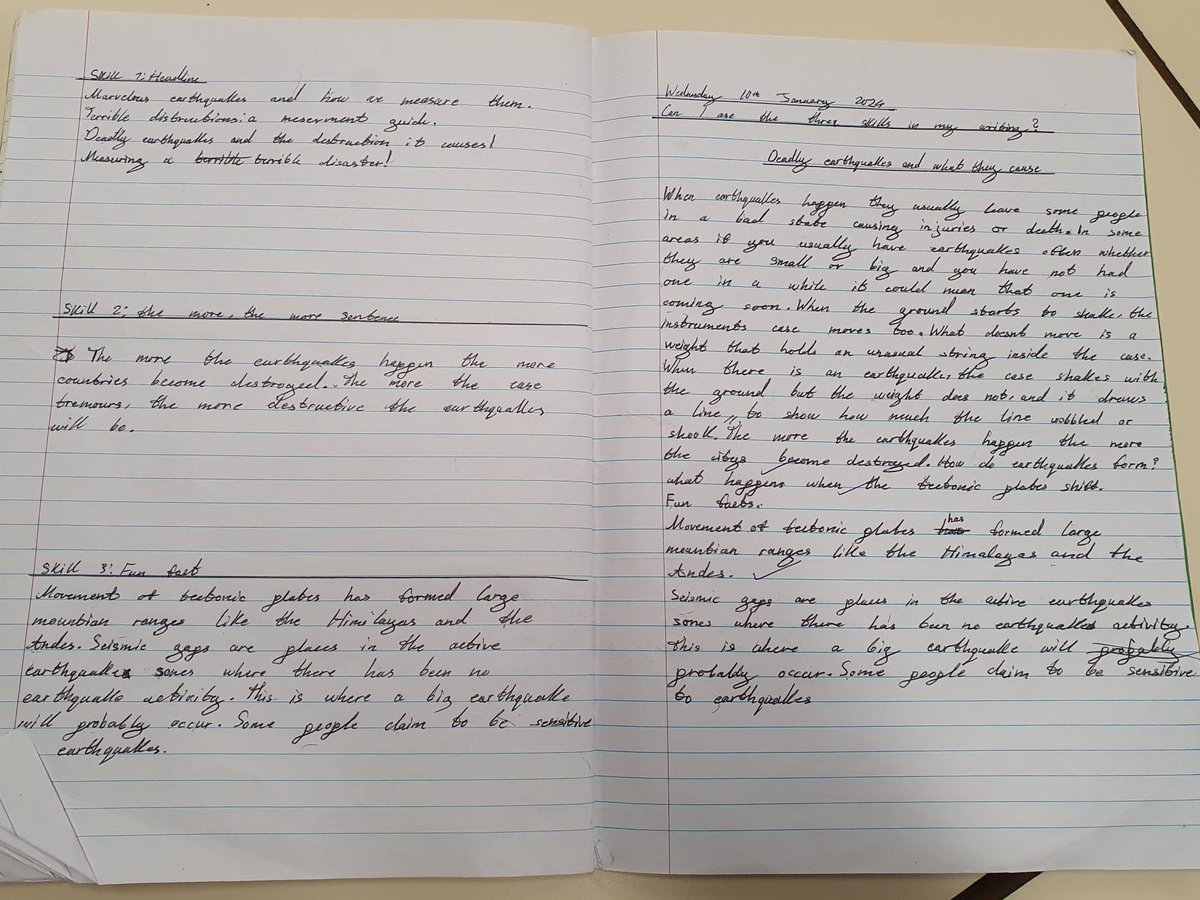 Skill 1: Headline
Marvelous earthquakes and how we measure them.
Terrible distructions: a meserment guide.
Deadly earthquakes and the destruction it causes!
Measuring a terrible terrible disaster!
Skill 2: the more, the more sentence
The more the earthquakes happen the more
countries become destroyed. The more the case
tremours, the more destructive the earthquakes
will be.
Skill 3: Fun fact
Movement of tectonic plates has formed large
mountian ranges like the Himilayas and the
Andes. Seismic gaps are places in the active
earthquakes sones where there has been no
earthquake activity. This is where a big earthquake
will probably occur. Some people claim to be sensitive
earthquakes.
Wednesday 10th January 2024
Can I use the three skills in my writing?
Deadly earthquakes and what they cause
When earthquakes happen they usually leave some people
in a bad state causing injuries or death. In some
areas if you usually have earthquakes often whether
they are small or big and you have not had
one in a while it could mean that one is
coming soon. When the ground starts to shake, the
instruments case moves too. What doesnt move is a
weight that holds an unusual string inside the case.
When there is an earthquake, the case shakes with
the ground but the weight does not, and it draws
a line, to show how much the line wobbled or
shook. The more the earthquakes happen the more
the citys become destroyed. How do earthquakes form?
what happens when the tectonic plates shift.
Fun facts.
Movement of tectonic plates has formed large
mountian ranges like the Himalayas and the
Andes.
Seismic gaps are places in the active earthquakes
sones where there has been no earthquakes activity.
This is where a big earthquake will probably
probably occur. Some people claim to be sensitive
to earthquakes